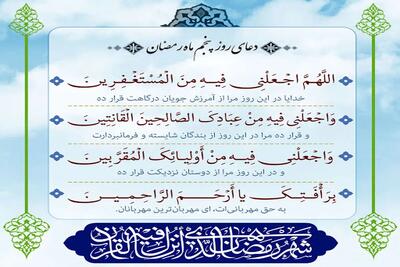 دعای روز پنجم ماه رمضان
اَللّهُمَّ اجْعَلْنی فیهِ مِنَ الْمُسْتَغْفِرینَ
خدایا در این روز مرا از آمرزش جویان درگاهت قرار ده
وَاجْعَلْنی فیهِ مِنْ عِبادِکَ الصّالِحینَ الْقانِتینَ
و قرار ده مرا در این روز از بندگان شایسته و فرمانبردارت
وَاجْعَلْنی فیهِ مِنْ أَوْلِیائِکَ الْمُقَرَّبینَ
و در این روز مرا از دوستان نزدیکت قرار ده
بِرَأْفَتِکَ یا أَرْحَمَ الرّاحِمینَ
به حق مهربانی‌ات، ای مهربان‌ترین مهربانان.
شهر رمضان الذی أنزل فیه القرآن